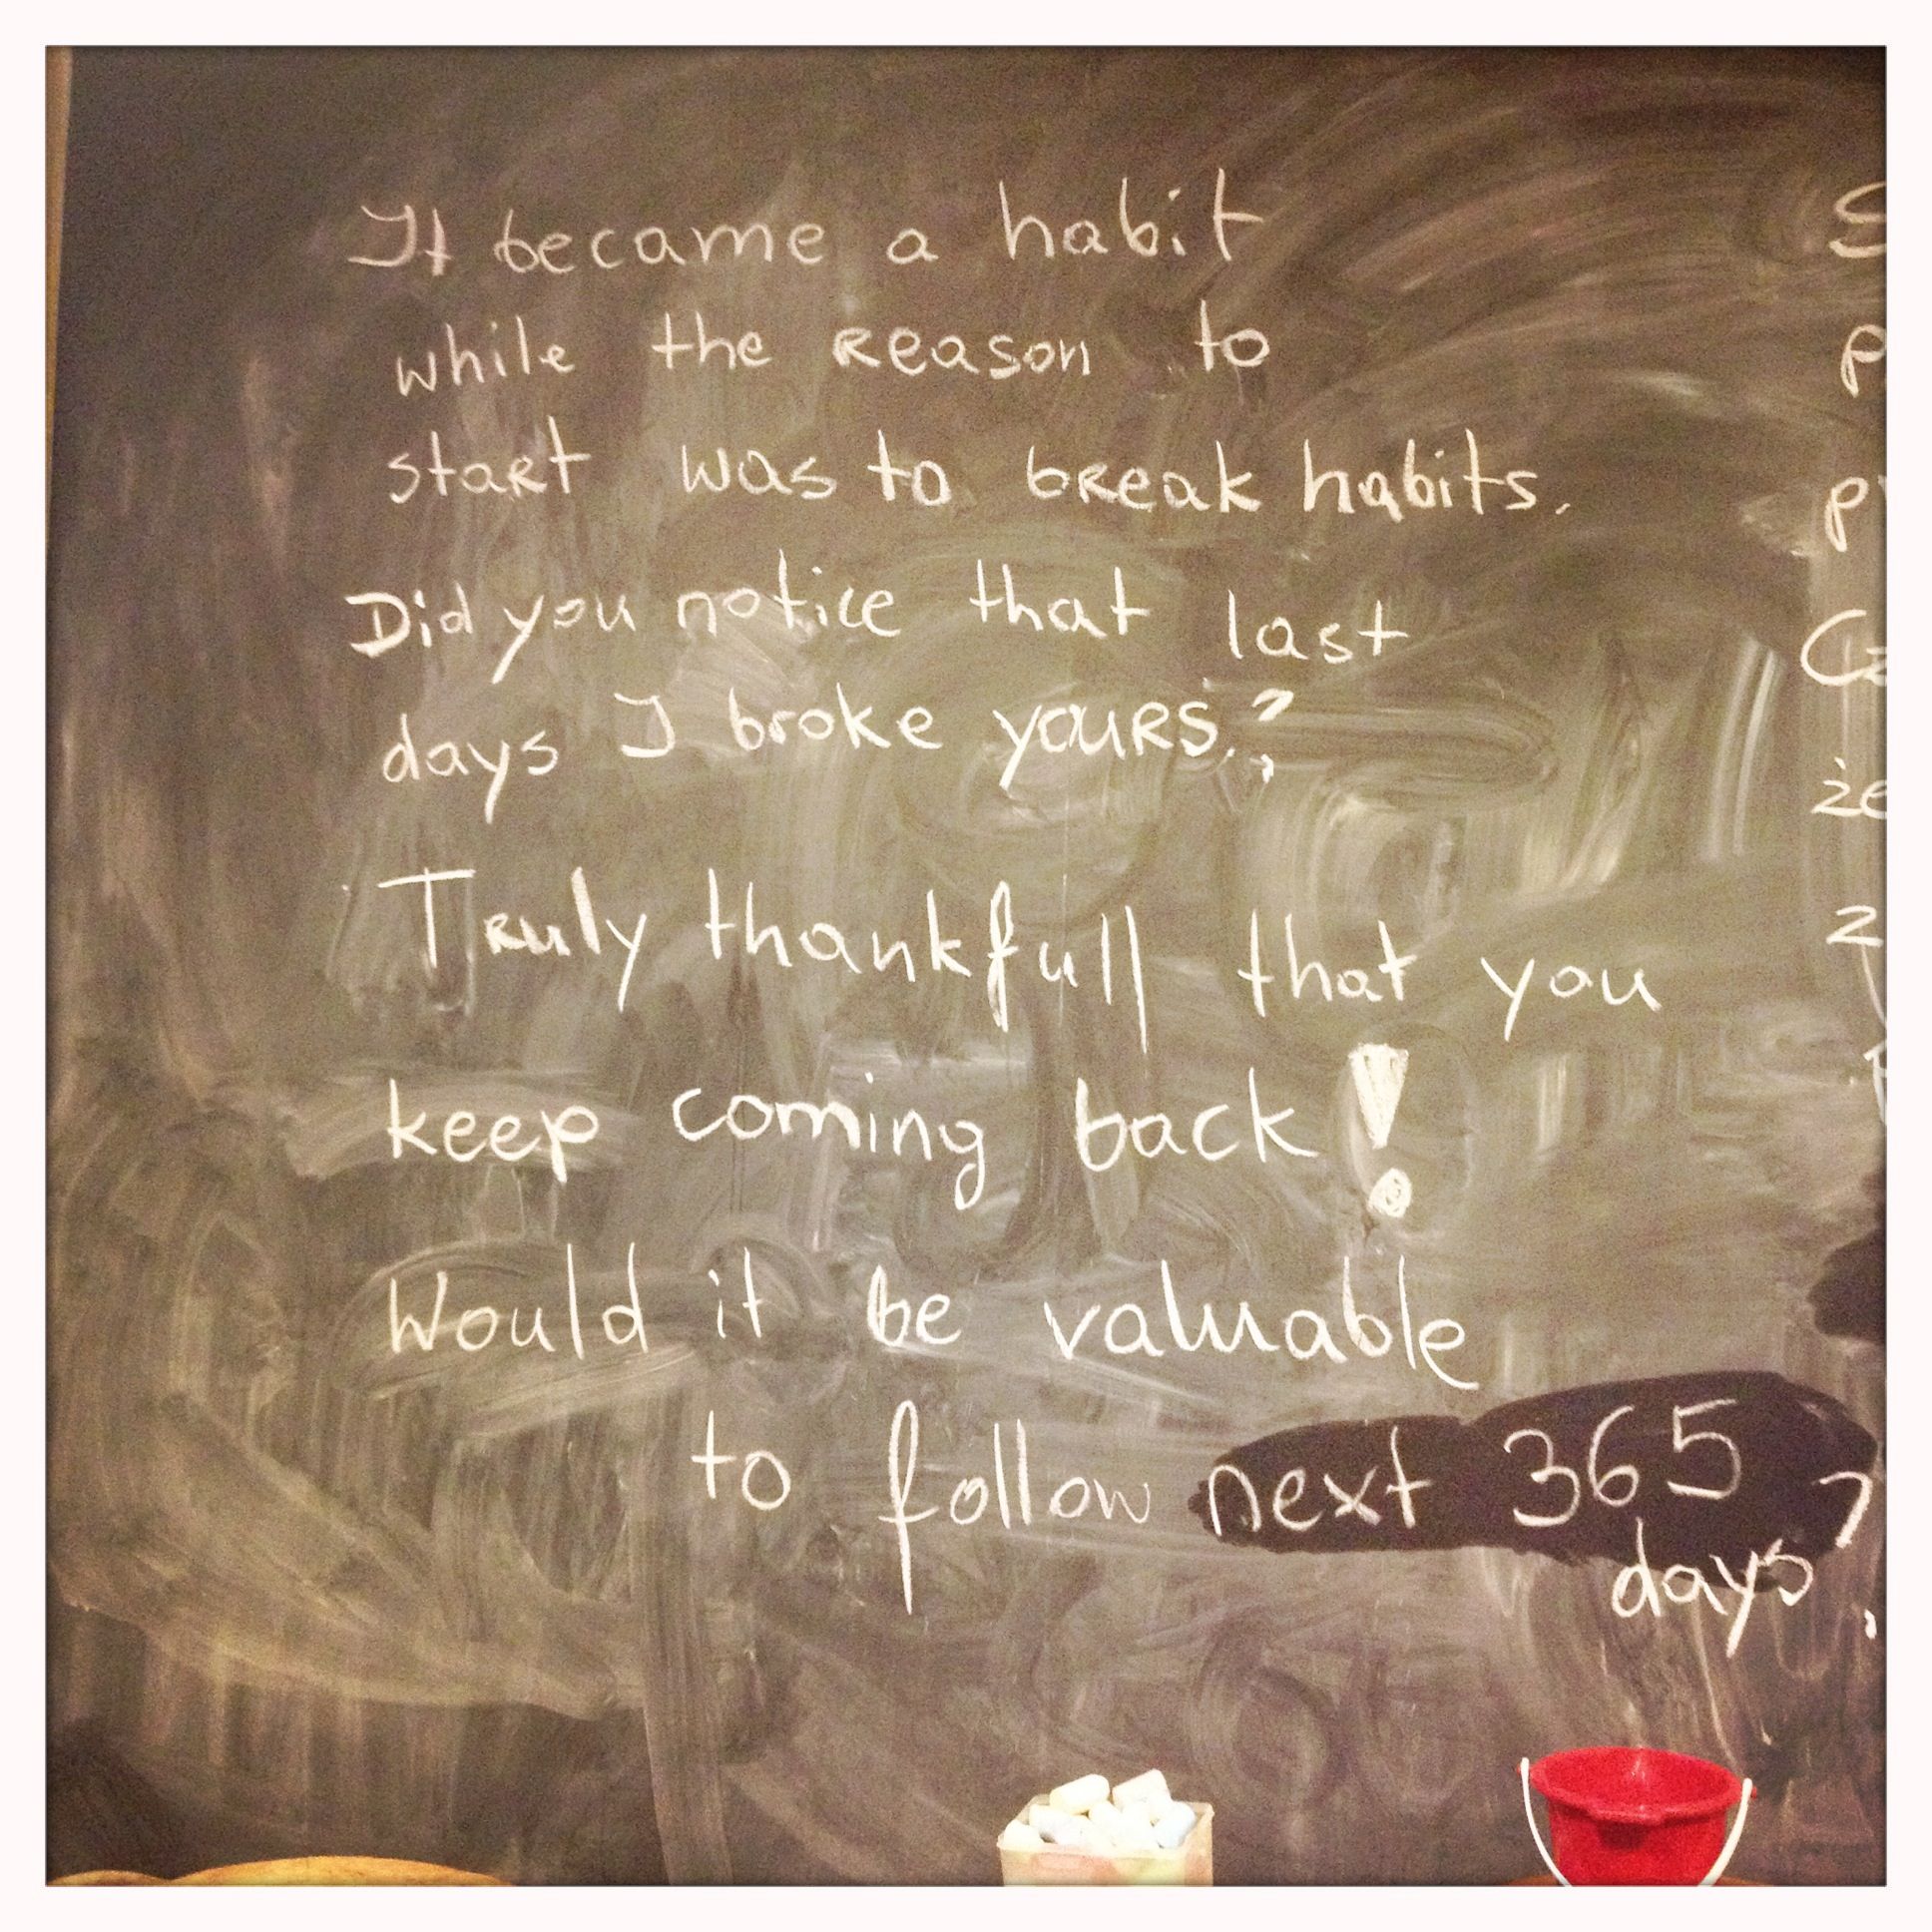 It became a habit
while the reason to
start was to break habits.
Did you notice that last
days I broke yours.?
Truly thankfull that you
keep coming back!
Would it be valuable
to follow next 365
days?